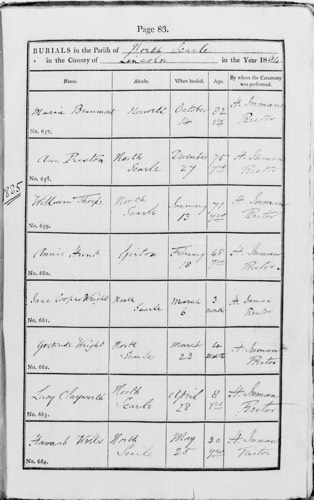 Page 83.
BURIALS in the Parish of North Scarle
in the County of Lincoln in the Year 1884
Name. Abode. When buried. Age. By whom the Ceremony was performed.
Maria Beaumont Norwell October 14 82 yrs H. Inman Rector
No. 657.
Ann Preston North Scarle December 27 75 yrs H. Inman Rector
No. 658.
1885
William Thorpe North Scarle January 13 71 yrs H. Inman Rector
No. 659.
Annie Hunt Girton February 18 48 yrs H. Inman Rector
No. 660.
Jane Cooper Wright North Scarle March 6 3 months H. Inman Rector
No. 661.
Gertrude Wright North Scarle March 23 4 months H. Inman Rector
No. 662.
Lucy Clayworth North Scarle April 28 8 yrs H. Inman Rector
No. 663.
Hannah North Scarle May 25 30 yrs H. Inman Rector
No. 664.